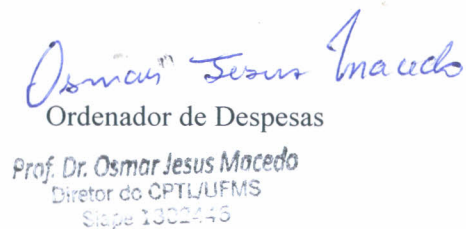 Osmar Jesus Macedo
Ordenador de Despesas
Prof. Dr. Osmar Jesus Macedo
Diretor do CPTL/UFMS
Siape